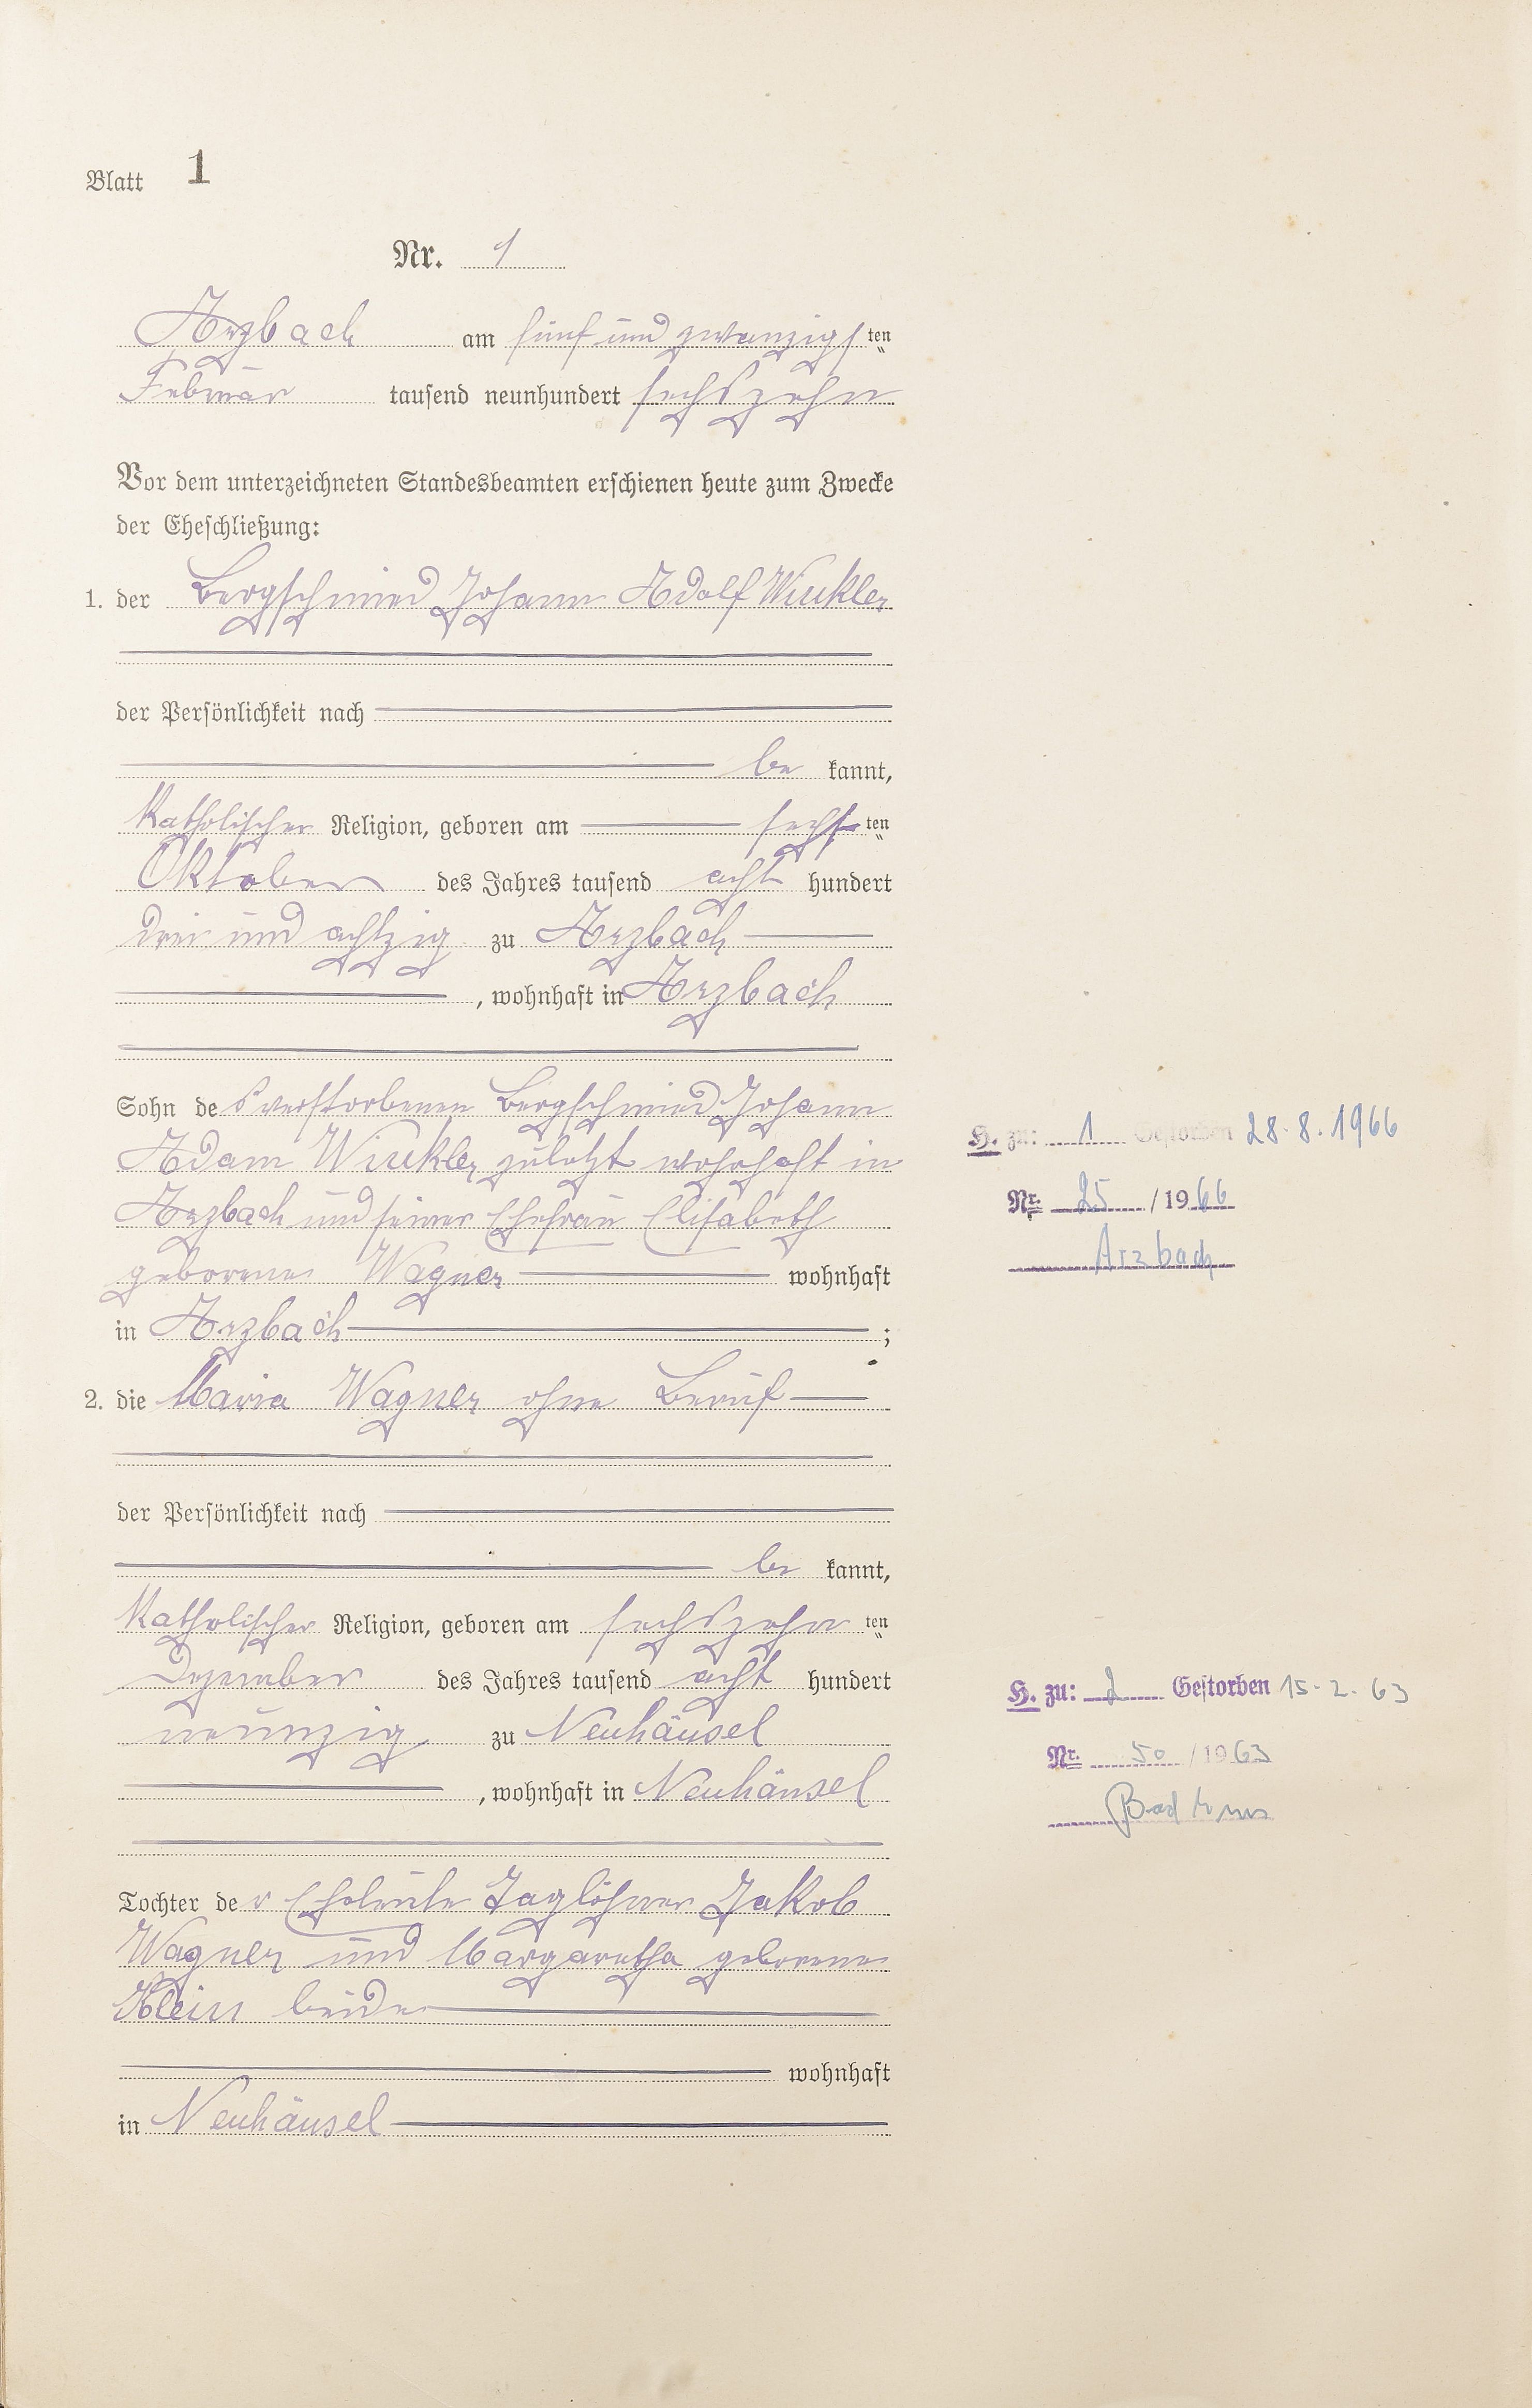 Blatt 1
Nr. 1
Arzbach am fünf und zwanzigsten
Februar tausend neunhundert sechszehn
Vor dem unterzeichneten Standesbeamten erschienen heute zum Zwecke
der Eheschließung:
1. der Bergschmied Johann Adolf Winkler
der Persönlichkeit nach
be kannt,
Katholischer Religion, geboren am sechsten
Oktober des Jahres tausend acht hundert
drei und achtzig zu Arzbach
, wohnhaft in Arzbach
Sohn des verstorbenen Bergschmied Johann
Adam Winkler zuletzt wohnhaft in
Arzbach und seiner Ehefrau Elisabeth
geborene Wagner wohnhaft
in Arzbach ;
2. die Maria Wagner ohne Beruf
der Persönlichkeit nach
be kannt,
Katholischer Religion, geboren am sechszehnten
Dezember des Jahres tausend acht hundert
neunzig zu Neuhäusel
, wohnhaft in Neuhäusel
Tochter der Eheleute Taglöhner Jakob
Wagner und Margaretha geborene
Klein beide
wohnhaft
in Neuhäusel
H. zu: 1 Gestorben 28.8.1966
Nr. 25 / 1966
Arzbach
H. zu: 2 Gestorben 15.2.63
Nr. 50 / 1963
Bad Ems